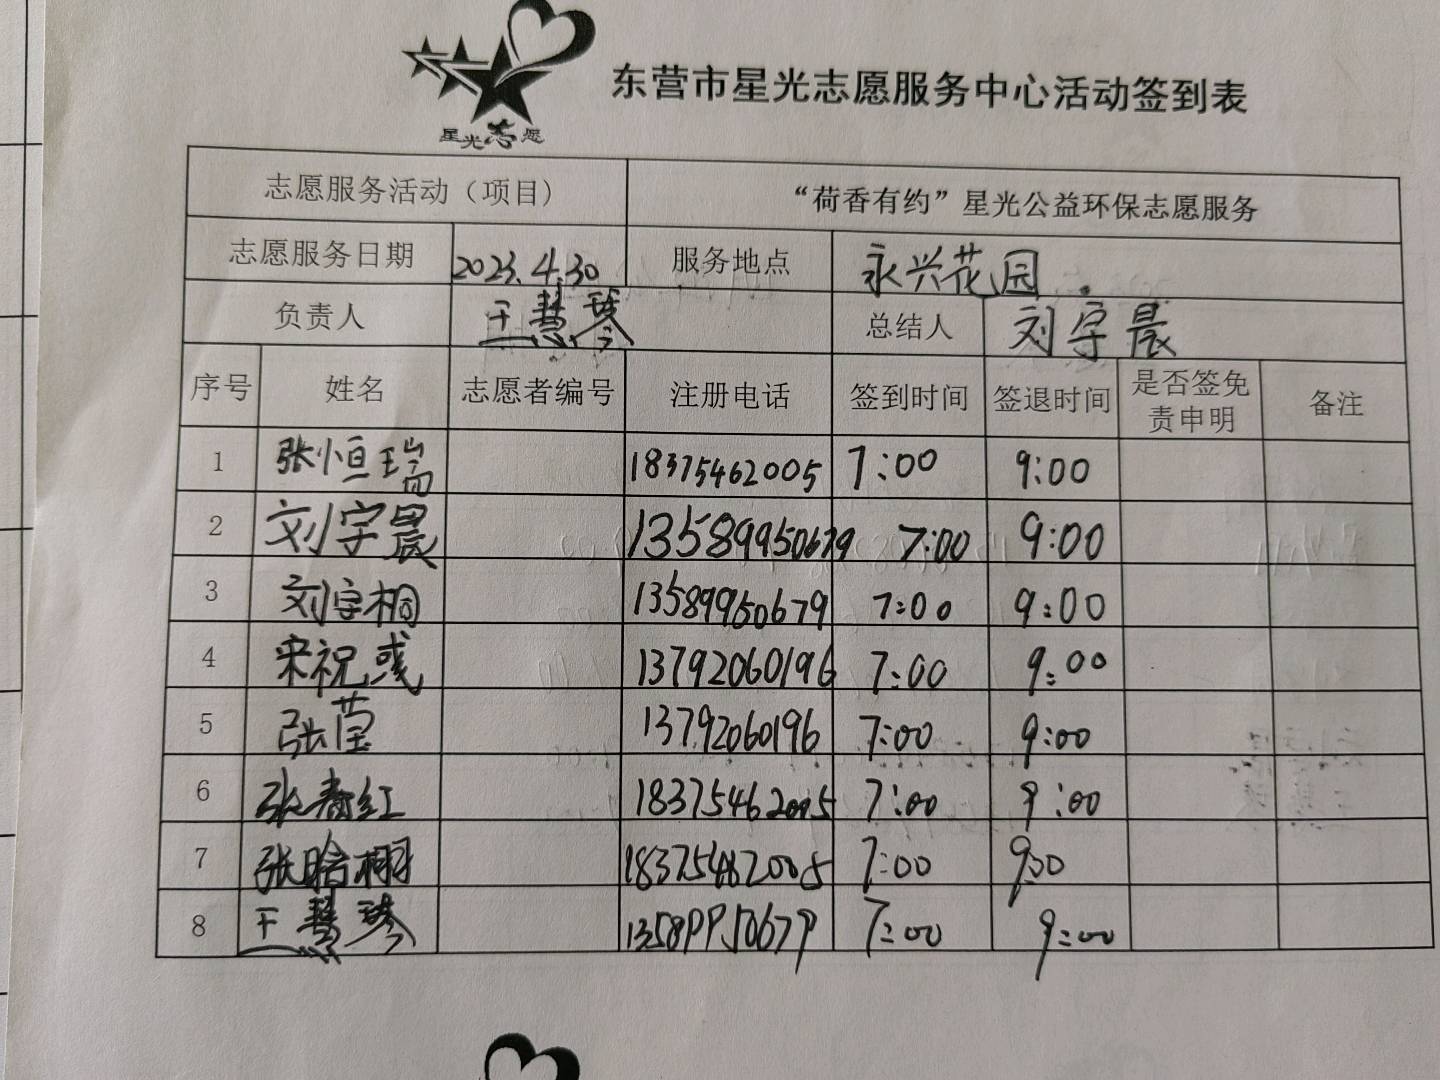 星光志愿
东营市星光志愿服务中心活动签到表
志愿服务活动（项目） “荷香有约”星光公益环保志愿服务
志愿服务日期 2023.4.30 服务地点 永兴花园.
负责人 王慧琴 总结人 刘宇晨
序号 姓名 志愿者编号 注册电话 签到时间 签退时间 是否签免责申明 备注
1 张恒瑞 18375462005 7:00 9:00
2 刘宇晨 13589950679 7:00 9:00
3 刘宇桐 13589950679 7:00 9:00
4 宋祝彧 13792060196 7:00 9:00
5 张莹 13792060196 7:00 9:00
6 张春红 18375462005 7:00 9:00
7 张晗栩 18375462005 7:00 9:00
8 王慧琴 13589950679 7:00 9:00